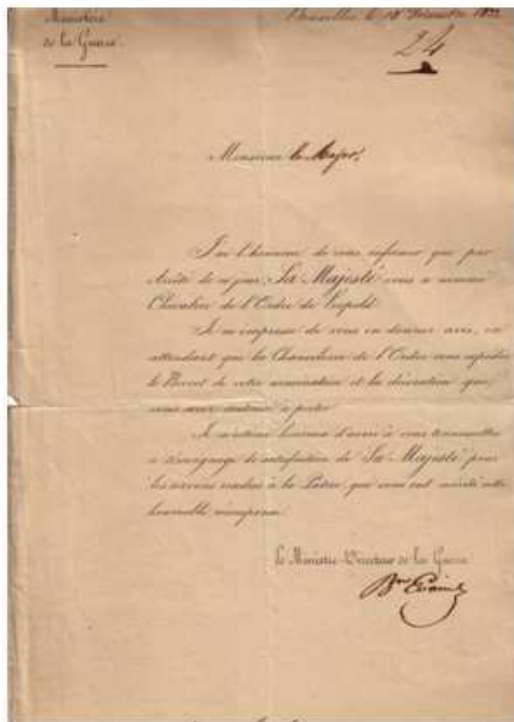 Ministère
de la Guerre.
Bruxelles, le 15 Décembre
24
Monsieur le Major,
J'ai l'honneur de vous informer que par
Arrêté de ce jour, Sa Majesté vous a nommé
Chevalier de l'Ordre de Léopold.
Je m'empresse de vous en donner avis, en
attendant que la Chancellerie de l'Ordre vous expédie
le Brevet de votre nomination et la décoration que
vous avez autorisé à porter.
Je m'estime heureux d'avoir à vous transmettre
ce témoignage de satisfaction de Sa Majesté pour
les services rendus à la Patrie, que vous ont mérité cette
honorable récompense.
Le Ministre Directeur de la Guerre
Bon Evain